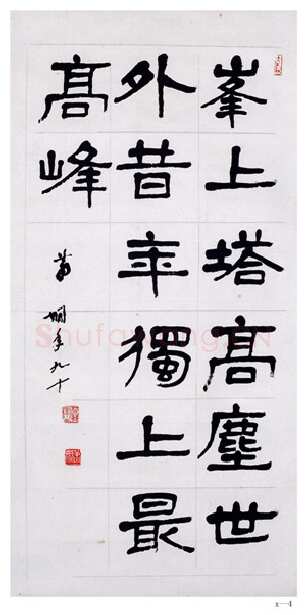 峯上塔髙塵世
外昔年獨上最
髙峰
蕭嫻年九十